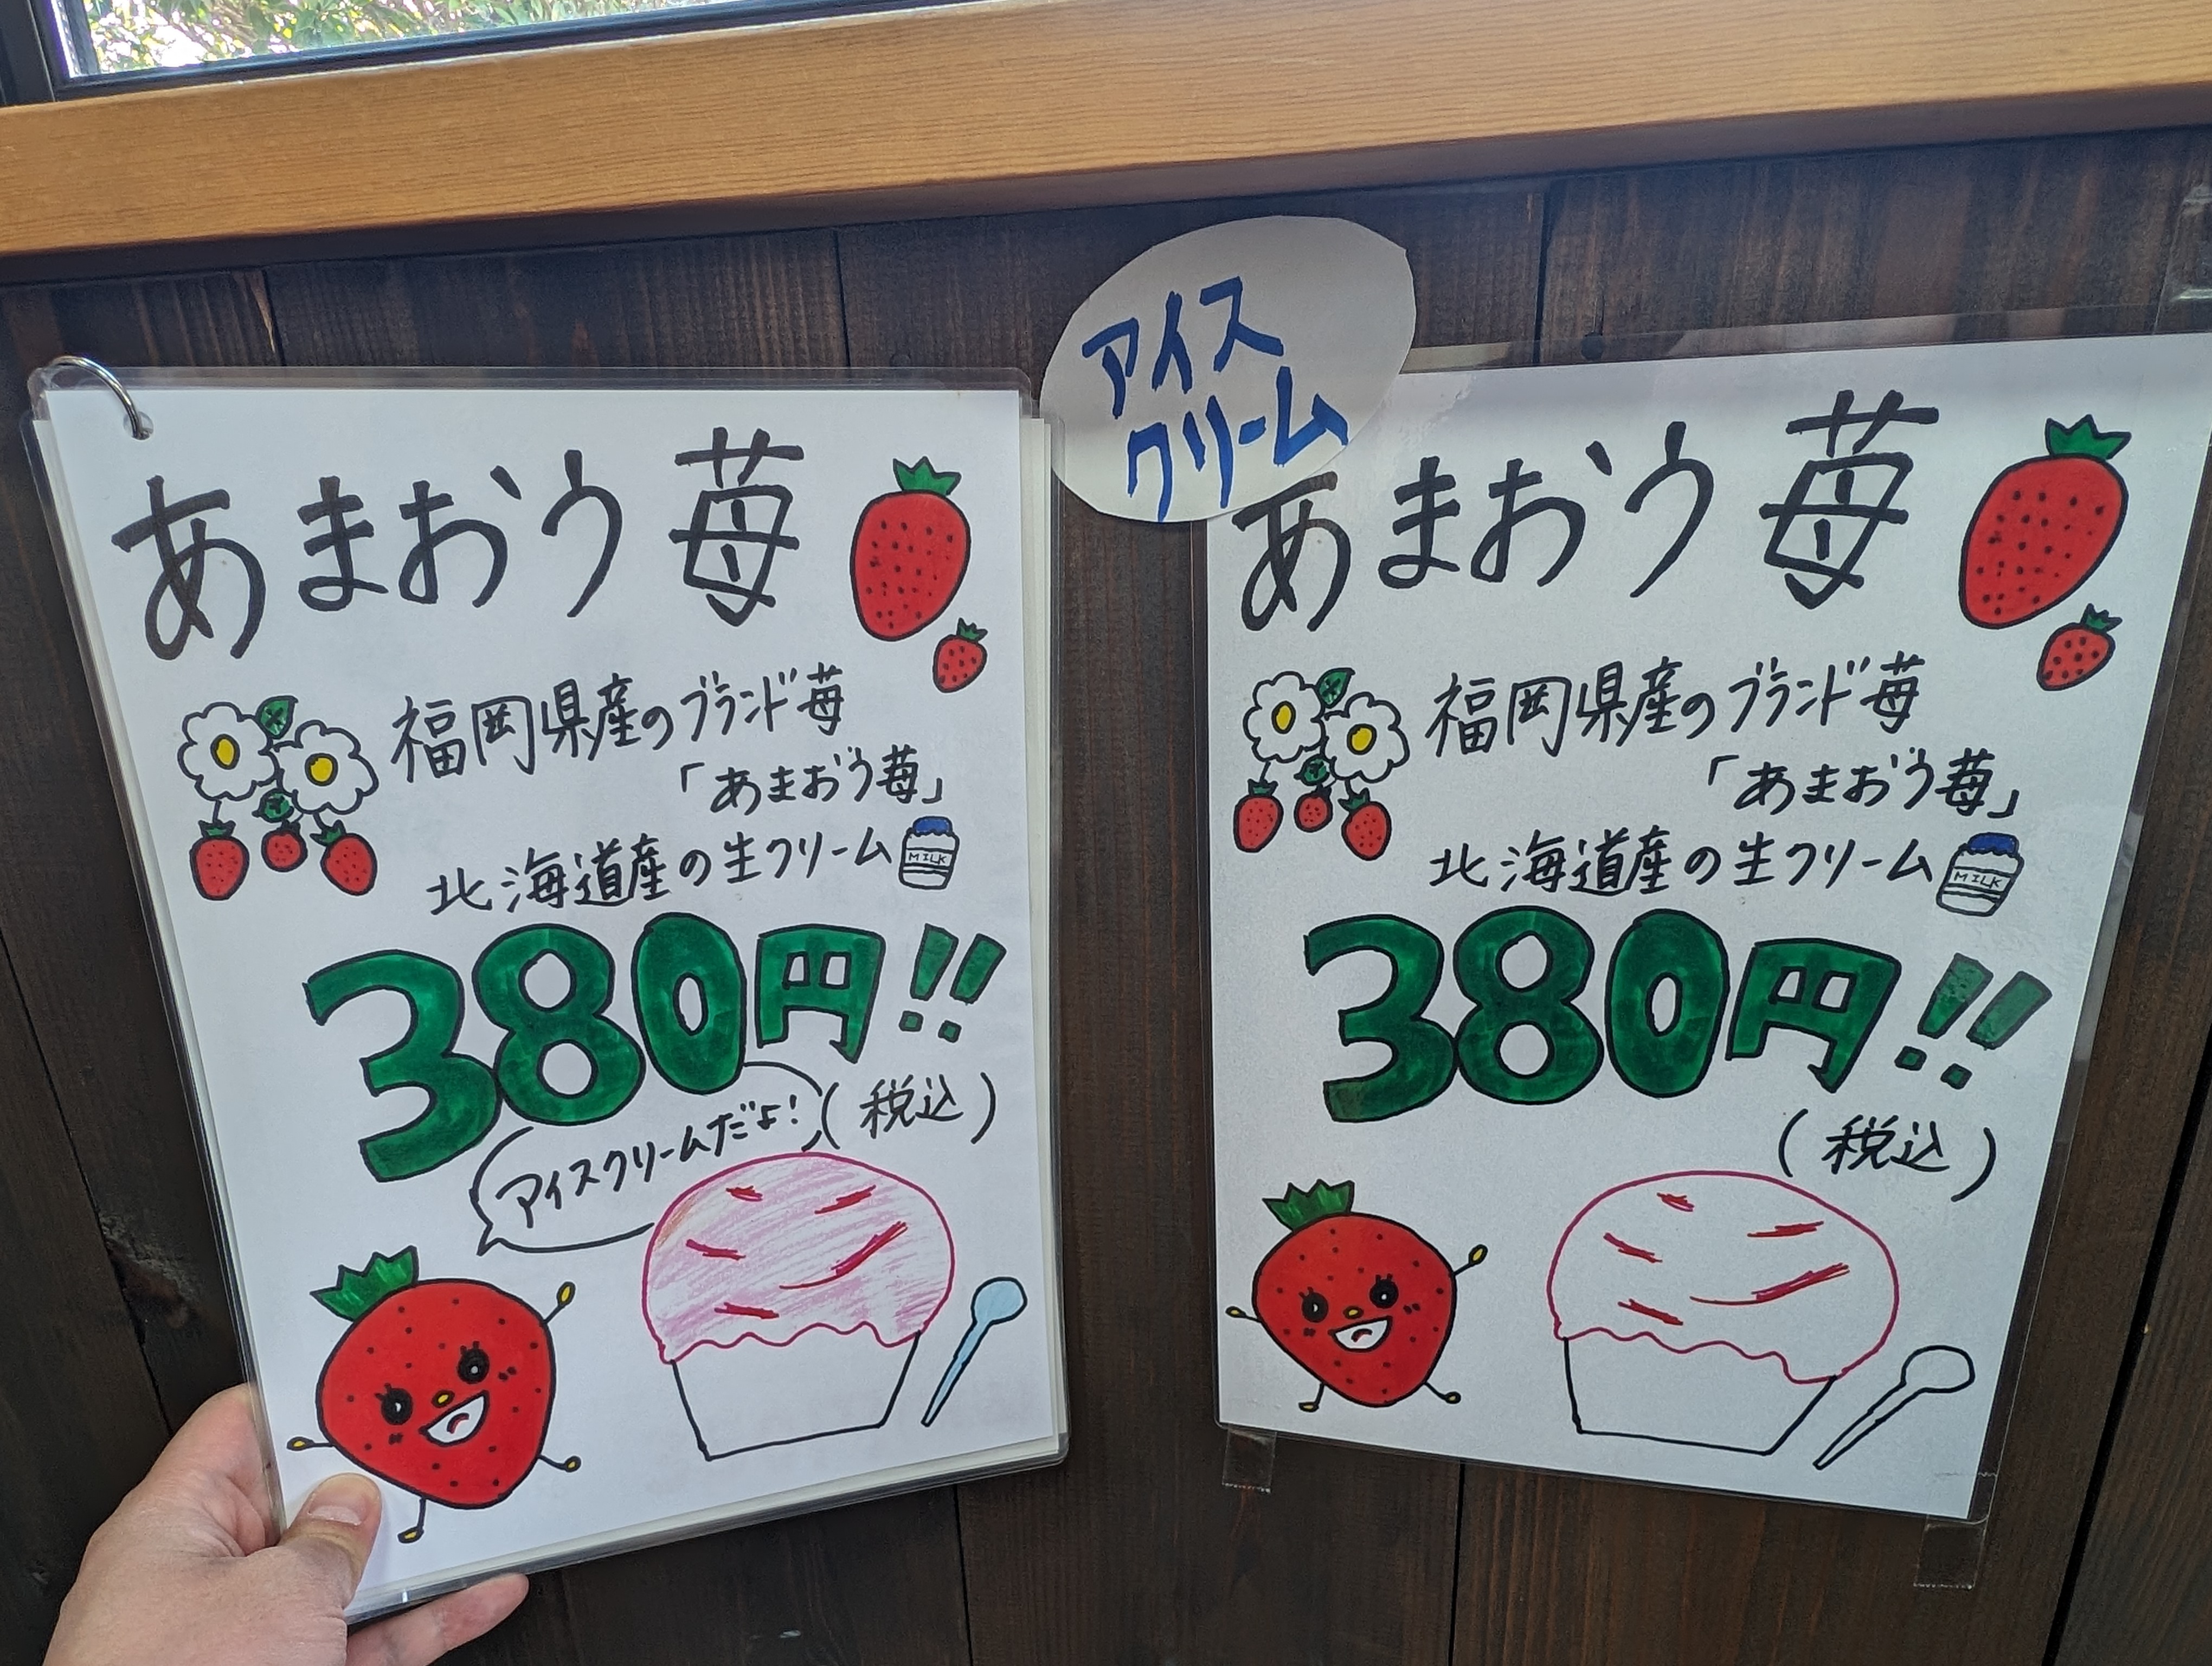 あまおう苺
福岡県産のブランド苺
「あまおう苺」
北海道産の生クリーム
MILK
380円!!
(税込)
アイスクリームだよ!
アイス
クリーム
あまおう苺
福岡県産のブランド苺
「あまおう苺」
北海道産の生クリーム
MILK
380円!!
(税込)